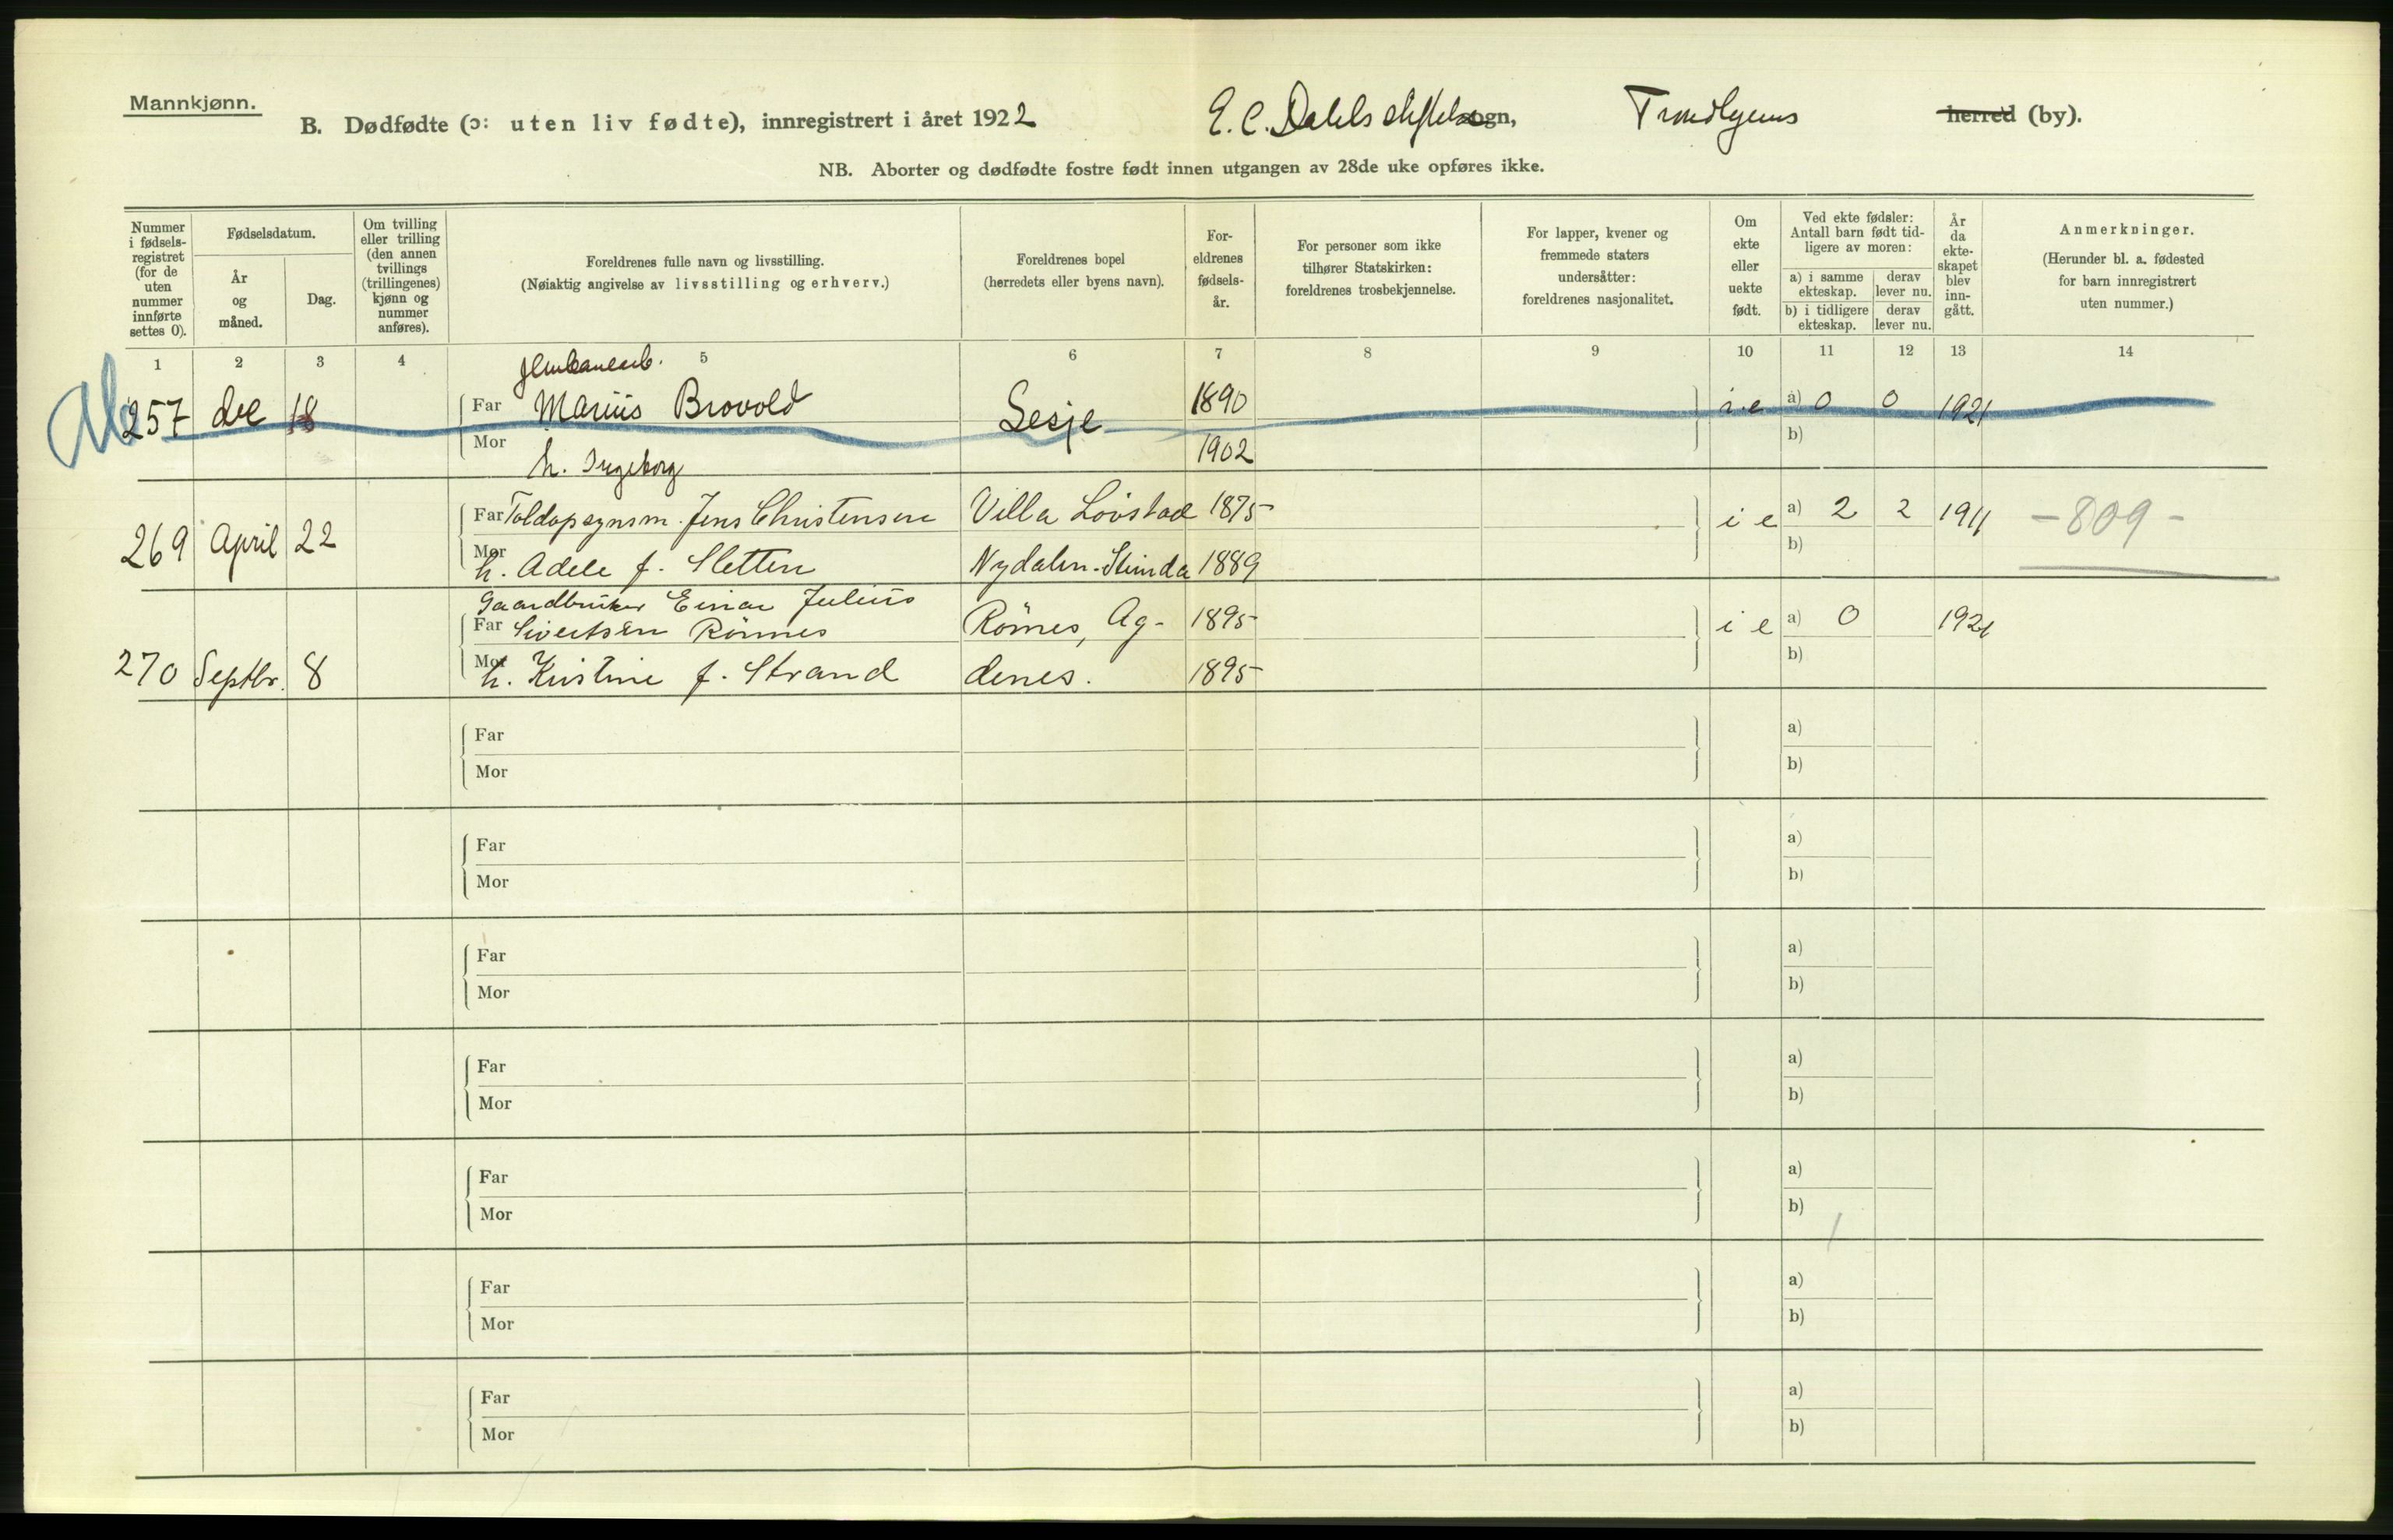 Mannkjønn.
B. Dødfødte (ɔ: uten liv fødte), innregistrert i året 1922 E. C. Dahls stiftelse sogn, Trondhjems herred (by).
NB. Aborter og dødfødte fostre født innen utgangen av 28de uke opføres ikke.
Nummer i fødsels-registret (for de uten nummer innførte settes 0).
Fødselsdatum.
År og måned.
Dag.
Om tvilling eller trilling (den annen tvillings (trillingenes) kjønn og nummer anføres).
Foreldrenes fulle navn og livsstilling.
(Nøiaktig angivelse av livsstilling og erhverv.)
Foreldrenes bopel
(herredets eller byens navn).
For-eldrenes fødsels-år.
For personer som ikke tilhører Statskirken: foreldrenes trosbekjennelse.
For lapper, kvener og fremmede staters undersåtter: foreldrenes nasjonalitet.
Om ekte eller uekte født.
Ved ekte fødsler: Antall barn født tid-ligere av moren:
a) i samme ekteskap. derav lever nu.
b) i tidligere ekteskap. derav lever nu.
År da ekte-skapet blev inn-gått.
Anmerkninger.
(Herunder bl. a. fødested for barn innregistrert uten nummer.)
1 2 3 4 5 6 7 8 9 10 11 12 13 14
257 de 18 Far Marius Brovold Lesje 1890 i.e a) 0 0 1921
Mor h. Ingeborg 1902 b)
269 April 22 Far Toldopsynsm. Jens Christensen Villa Lövstad 1875 i e a) 2 2 1911 -809-
Mor h. Adele f. Sletten Nydalen-Strinda 1889 b)
Gaardbruker Einar Julius
Far Sivertsen Rönnes Römes, Ag- 1895 i e a) 0 1921
270 Septbr. 8 Mor h. Kristine f. Strand denes. 1895 b)
Far a)
Mor b)
Far a)
Mor b)
Far a)
Mor b)
Far a)
Mor b)
Far a)
Mor b)
Far a)
Mor b)
Far a)
Mor b)